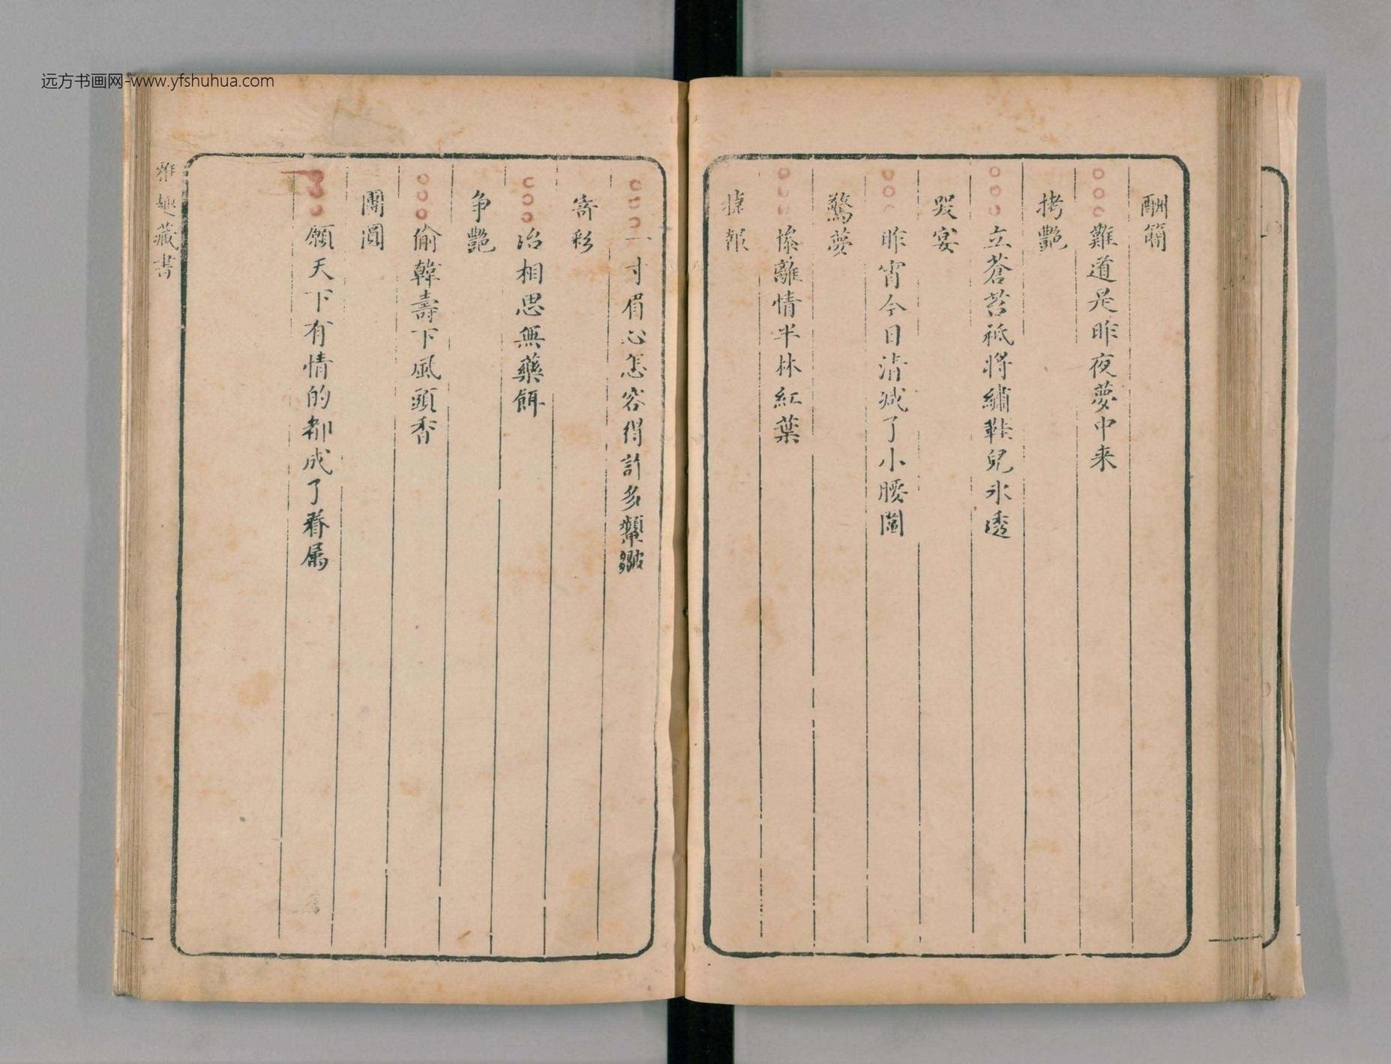 远方书画网-www.yfshuhua.com
酬簡
難道是昨夜夢中来
拷艷
立蒼苔祗將繡鞋兒氷透
哭宴
昨宵今日清减了小腰圍
驚夢
慘離情半林紅葉
捷報
一寸眉心怎容得許多顰皺
寄彩
治相思無藥餌
争艷
偷韓壽下風頭香
團圓
願天下有情的都成了眷属
雅趣藏書